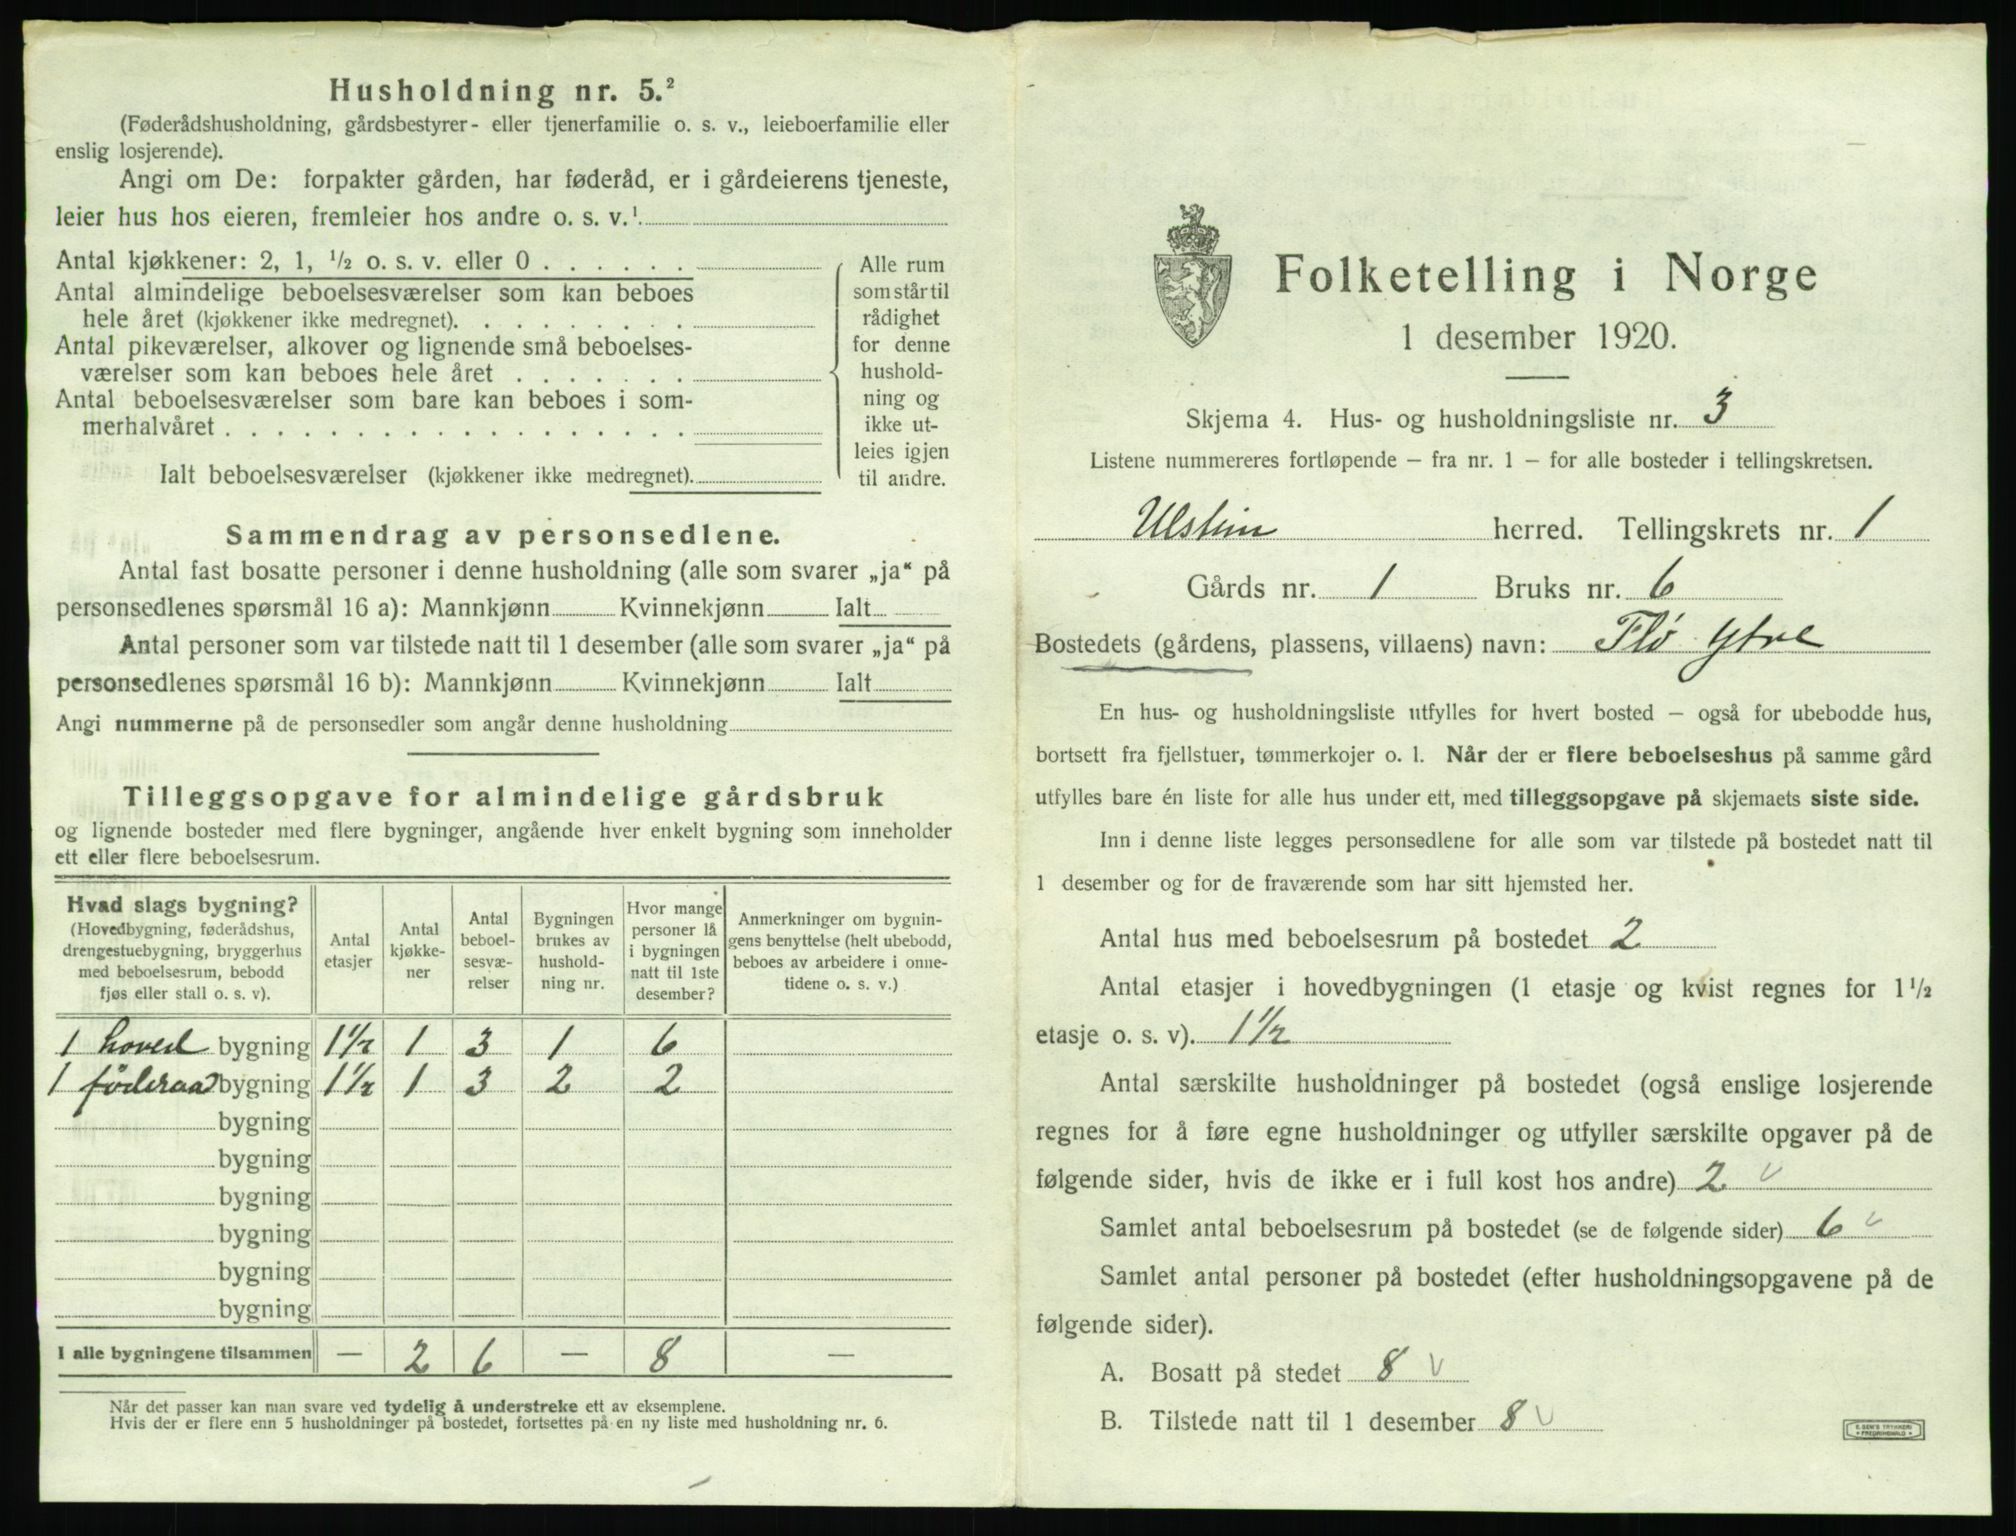 Husholdning nr. 5.²
(Føderådshusholdning, gårdsbestyrer- eller tjenerfamilie o. s. v., leieboerfamilie eller
enslig losjerende).
Angi om De: forpakter gården, har føderåd, er i gårdeierens tjeneste,
leier hus hos eieren, fremleier hos andre o. s. v.¹
Antal kjøkkener: 2, 1, ½ o. s. v. eller 0 . . . . . .
Antal almindelige beboelsesværelser som kan beboes
hele året (kjøkkener ikke medregnet). . . . . . . . .
Antal pikeværelser, alkover og lignende små beboelses-
værelser som kan beboes hele året . . . . . . .
Antal beboelsesværelser som bare kan beboes i som-
merhalvåret . . . . . . . . . . . . . . . . . .
Ialt beboelsesværelser (kjøkkener ikke medregnet).
Alle rum
som står til
rådighet
for denne
hushold-
ning og
ikke ut-
leies igjen
til andre.
Sammendrag av personsedlene.
Antal fast bosatte personer i denne husholdning (alle som svarer „ja“ på
personsedlenes spørsmål 16 a): Mannkjønn Kvinnekjønn Ialt
Antal personer som var tilstede natt til 1 desember (alle som svarer „ja“ på
personsedlenes spørsmål 16 b): Mannkjønn Kvinnekjønn Ialt
Angi nummerne på de personsedler som angår denne husholdning
Tilleggsopgave for almindelige gårdsbruk
og lignende bosteder med flere bygninger, angående hver enkelt bygning som inneholder
ett eller flere beboelsesrum.
Hvad slags bygning?
(Hovedbygning, føderådshus,
drengestuebygning, bryggerhus
med beboelsesrum, bebodd
fjøs eller stall o. s. v).
Antal
etasjer
Antal
kjøkke-
ner
Antal
beboel-
sesvæ-
relser
Bygningen
brukes av
hushold-
ning nr.
Hvor mange
personer lå
i bygningen
natt til 1ste
desember?
Anmerkninger om bygnin-
gens benyttelse (helt ubebodd,
beboes av arbeidere i onne-
tidene o. s. v.)
1 hoved bygning 1½ 1 3 1 6
1 föderaad bygning 1½ 1 3 2 2
bygning
bygning
bygning
bygning
bygning
bygning
I alle bygningene tilsammen — 2 6 — 8 —
Når det passer kan man svare ved tydelig å understreke ett av eksemplene.
Hvis der er flere enn 5 husholdninger på bostedet, fortsettes på en ny liste med husholdning nr. 6.
Folketelling i Norge
1 desember 1920.
Skjema 4. Hus- og husholdningsliste nr. 3
Listene nummereres fortløpende – fra nr. 1 – for alle bosteder i tellingskretsen.
Ulstein herred. Tellingskrets nr. 1
Gårds nr. 1 Bruks nr. 6
Bostedets (gårdens, plassens, villaens) navn: Flö Ytre
En hus- og husholdningsliste utfylles for hvert bosted – også for ubebodde hus,
bortsett fra fjellstuer, tømmerkojer o. l. Når der er flere beboelseshus på samme gård
utfylles bare én liste for alle hus under ett, med tilleggsopgave på skjemaets siste side.
Inn i denne liste legges personsedlene for alle som var tilstede på bostedet natt til
1 desember og for de fraværende som har sitt hjemsted her.
Antal hus med beboelsesrum på bostedet 2
Antal etasjer i hovedbygningen (1 etasje og kvist regnes for 1½
etasje o. s. v). 1½
Antal særskilte husholdninger på bostedet (også enslige losjerende
regnes for å føre egne husholdninger og utfyller særskilte opgaver på de
følgende sider, hvis de ikke er i full kost hos andre) 2
Samlet antal beboelsesrum på bostedet (se de følgende sider) 6
Samlet antal personer på bostedet (efter husholdningsopgavene på de
følgende sider).
A. Bosatt på stedet 8
B. Tilstede natt til 1 desember 8